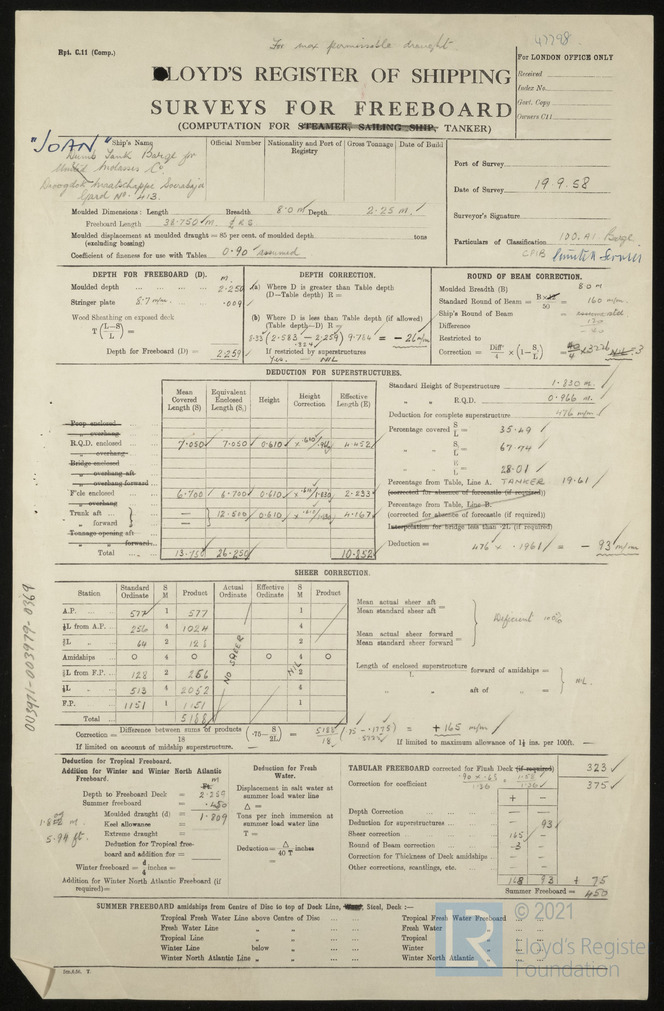 For max permissable draught.
47798
Rpt. C.11 (Comp.)
LLOYD'S REGISTER OF SHIPPING
SURVEYS FOR FREEBOARD
(COMPUTATION FOR STEAMER, SAILING SHIP, TANKER)
For LONDON OFFICE ONLY
Received
Index No.
Govt. Copy
Owners C11
"JOAN"
Ship's Name
Official Number
Nationality and Port of Registry
Gross Tonnage
Date of Build
Dumb Tank Barge for
United Molasses Co
Droogdok Maatschappij Soerabaja
Yard No. 413.
Port of Survey
Date of Survey 19.9.58
Surveyor's Signature
Particulars of Classification 100.A1 Barge
Moulded Dimensions: Length Breadth 8.0 m Depth 2.25 m.
Freeboard Length 38.750 m.
Moulded displacement at moulded draught = 85 per cent. of moulded depth tons
(excluding bossing)
Coefficient of fineness for use with Tables 0.90 assumed
DEPTH FOR FREEBOARD (D).
m.
Moulded depth 2.250
Stringer plate 8.7 m/m .009
Wood Sheathing on exposed deck
T (L–S / L) =
Depth for Freeboard (D) = 2.259
DEPTH CORRECTION.
(a) Where D is greater than Table depth
(D—Table depth) R =
(b) Where D is less than Table depth (if allowed)
(Table depth—D) R =
8.33 (2.583 - 2.259) 9.784 = - 26 m/m
.324
If restricted by superstructures
Yes. — NIL
ROUND OF BEAM CORRECTION.
Moulded Breadth (B) 8.0 m
Standard Round of Beam = B×12 / 50 = 160 m/m
Ship's Round of Beam =
Difference
Restricted to
Correction = Diff / 4 × (1 – S / L) =
DEDUCTION FOR SUPERSTRUCTURES.
Mean Covered Length (S)
Equivalent Enclosed Length (S₁)
Height
Height Correction
Effective Length (E)
Poop enclosed
„ overhang
R.Q.D. enclosed 7.050 7.050 0.610 4.452
„ overhang
Bridge enclosed
„ overhang aft
„ overhang forward
F'cle enclosed 6.700 6.700 0.610 2.233
„ overhang
Trunk aft — 12.500 0.610 4.167
„ forward —
Tonnage opening aft
„ forward
Total 13.750 26.250 10.852
Standard Height of Superstructure 1.830 m.
„ „ R.Q.D. 0.966 m.
Deduction for complete superstructure 476 m/m
Percentage covered S / L = 35.49
„ S₁ / L = 67.74
„ E / L = 28.01
Percentage from Table, Line A. TANKER 19.61
(corrected for absence of forecastle (if required))
Percentage from Table, Line B.
(corrected for absence of forecastle (if required))
Interpolation for bridge less than .2L (if required)
Deduction = 476 × .1961 = - 93 m/m
SHEER CORRECTION.
Station
Standard Ordinate
S M
Product
Actual Ordinate
Effective Ordinate
S M
Product
A.P. 577 1 577 1
⅙L from A.P. 256 4 1024 4
⅓L „ 64 2 128 2
Amidships 0 4 0 0 4 0
⅓L from F.P. 128 2 256 2
⅙L „ 513 4 2052 4
F.P. 1151 1 1151 1
Total 5188
NO SHEER
NIL
Mean actual sheer aft
Mean standard sheer aft =
Mean actual sheer forward
Mean standard sheer forward =
Deficient 100%
Length of enclosed superstructure / L forward of amidships =
„ „ aft of „ =
NIL.
Correction = Difference between sums of products / 18 (.75– S / 2L) = 5188 / 18 (.75 - .1775) = + 165 m/m
If limited on account of midship superstructure.
If limited to maximum allowance of 1½ ins. per 100ft.
003971-003979-0369
Deduction for Tropical Freeboard.
Addition for Winter and Winter North Atlantic Freeboard.
m
Depth to Freeboard Deck = 2.259
Summer freeboard = .450
Moulded draught (d) = 1.809
Keel allowance =
Extreme draught =
5.94 ft.
Deduction for Tropical freeboard and addition for =
Winter freeboard = d / 4 inches =
Addition for Winter North Atlantic Freeboard (if required) =
Deduction for Fresh Water.
Displacement in salt water at summer load water line
Δ =
Tons per inch immersion at summer load water line
T =
Deduction = Δ / 40 T inches
=
TABULAR FREEBOARD corrected for Flush Deck (if required) 323
Correction for coefficient .90 + .68 / 1.36 = 1.58 / 1.36 375
+ –
Depth Correction — —
Deduction for superstructures — 93
Sheer correction 165 —
Round of Beam correction 3 —
Correction for Thickness of Deck amidships — —
Other corrections, scantlings, etc. — —
168 93 + 75
Summer Freeboard = 450
SUMMER FREEBOARD amidships from Centre of Disc to top of Deck Line, Wood, Steel, Deck :—
Tropical Fresh Water Line above Centre of Disc
Fresh Water Line „ „
Tropical Line „ „
Winter Line below „
Winter North Atlantic Line „ „
Tropical Fresh Water Freeboard
Fresh Water „
Tropical „
Winter „
Winter North Atlantic „
LR
© 2021
Lloyd's Register
Foundation